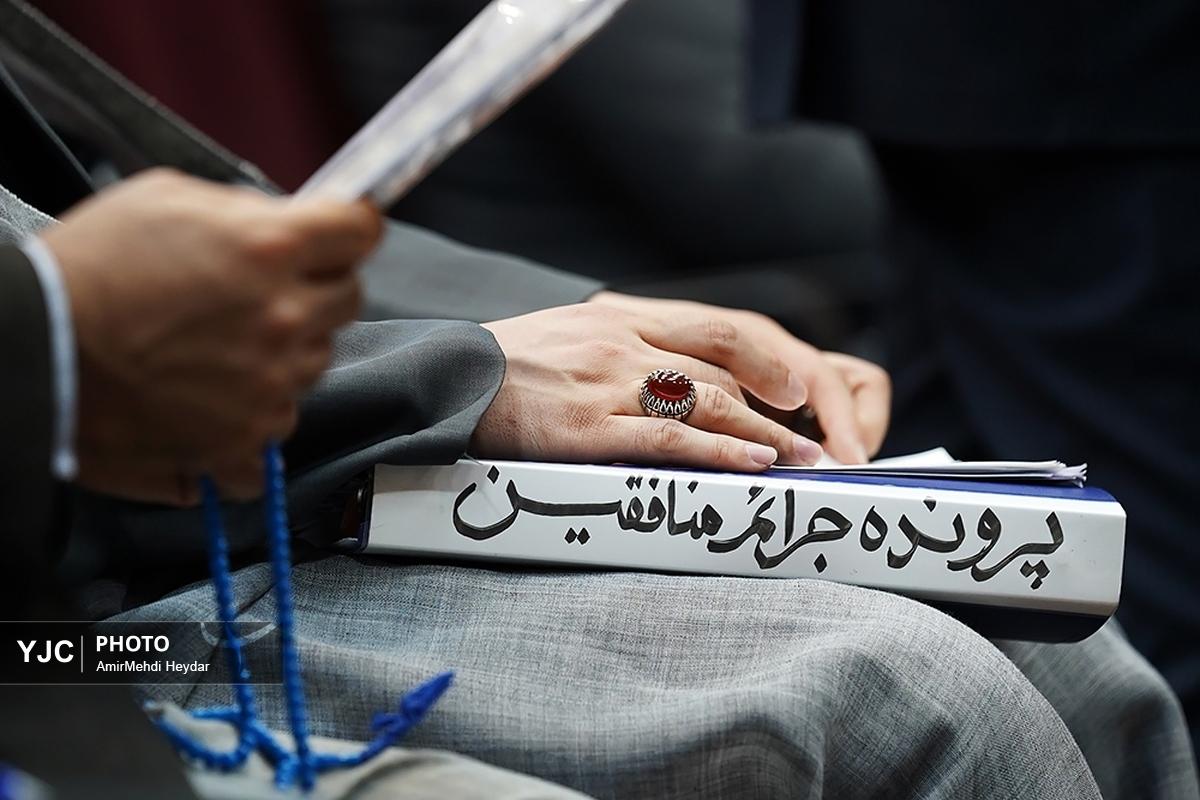 پرونده جرائم منافقین
YJC PHOTO
AmirMehdi Heydar